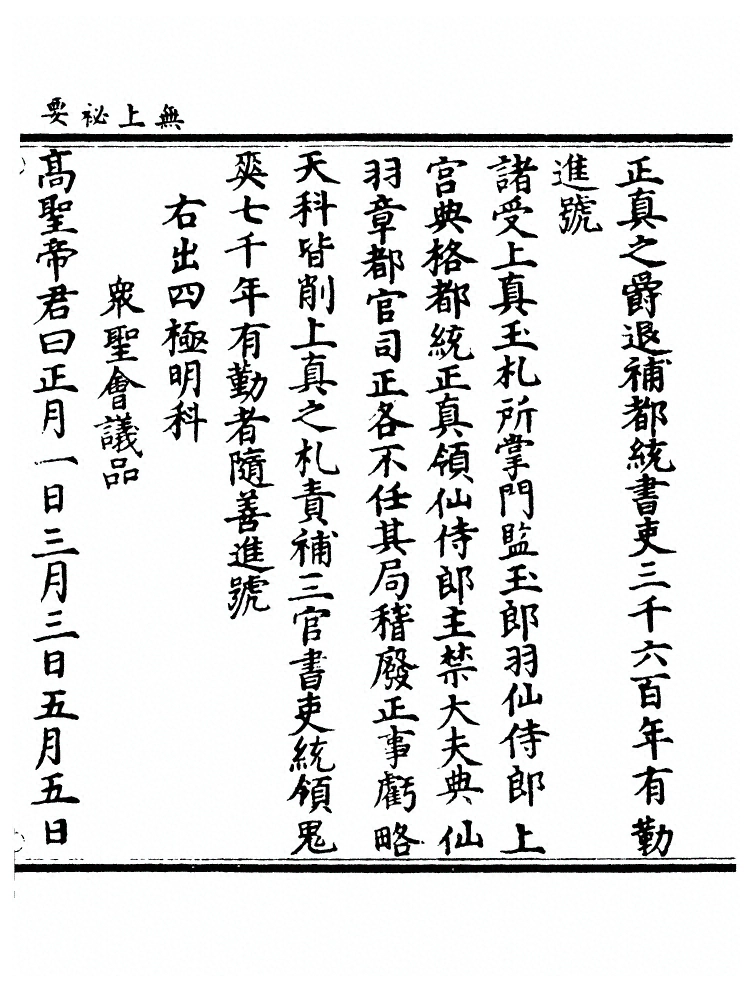 無上祕要
正真之爵退補都統書吏三千六百年有勤
進號
諸受上真玉札所掌門監玉郎羽仙侍郎上
宮典格都統正真領仙侍郎主禁大夫典仙
羽章都官司正各不任其局稽廢正事虧略
天科皆削上真之札責補三官書吏統領鬼
爽七千年有勤者隨善進號
右出四極明科
衆聖會議品
高聖帝君曰正月一日三月三日五月五日